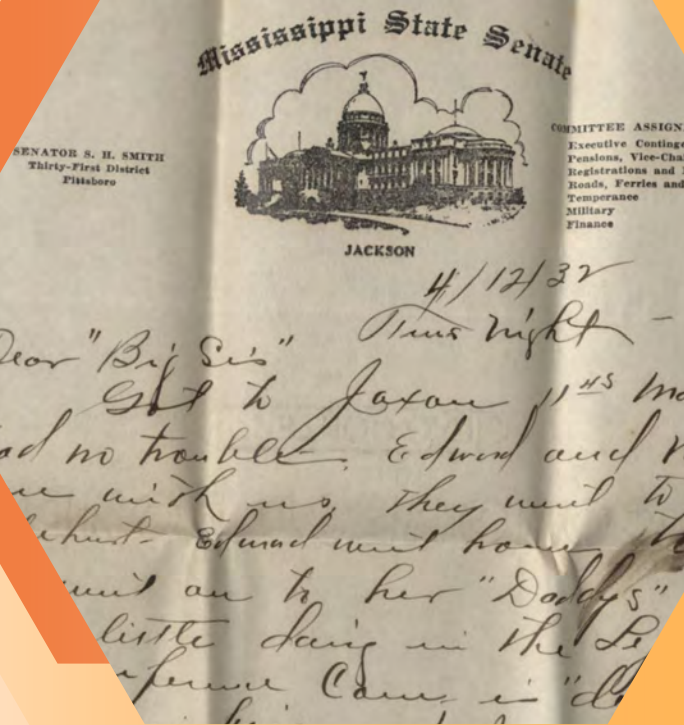 Mississippi State Senate
SENATOR S. H. SMITH
Thirty-First District
Pittsboro
COMMITTEE ASSIGN
Executive Continge
Pensions, Vice-Chai
Registrations and
Roads, Ferries and
Temperance
Military
Finance
JACKSON
4/12/32
Tues Night —
Dear "Big Sis"
Got to Jaxon 11 45
ad no trouble. Edward and
with us, they went to
hurst - Edward went home,
went on to her "Daddys"
little doing in the Le
nference Com. is "d